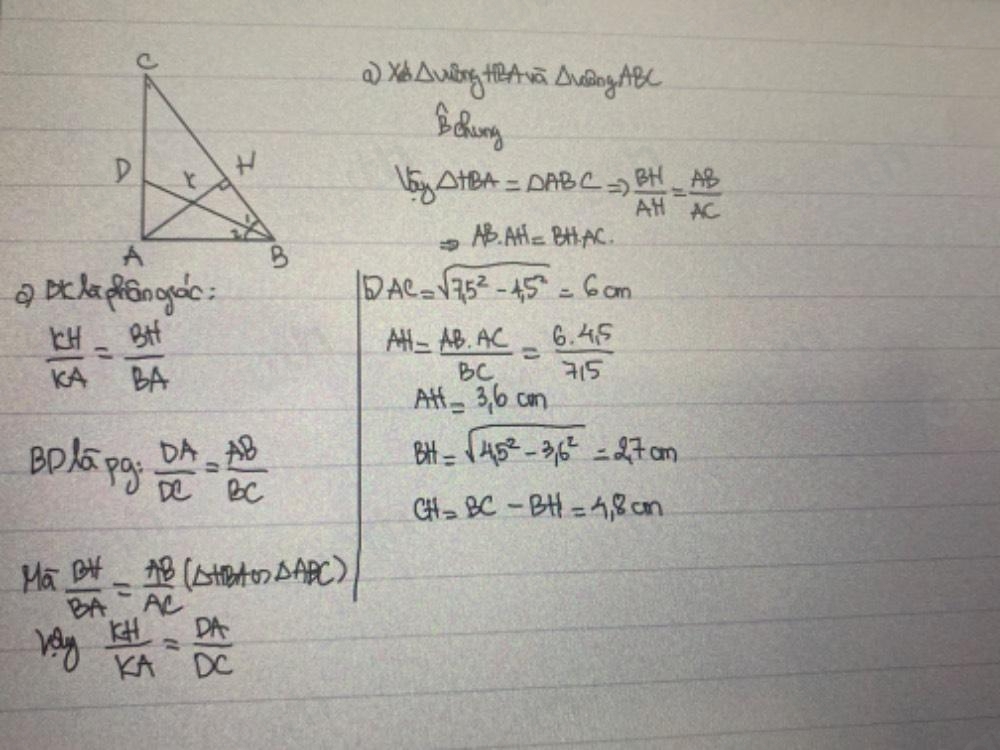 C
D
K
H
A
B
1
2
a) Xét Δ vuông HBA và Δ vuông ABC
B̂ chung
Vậy ΔHBA = ΔABC ⇒ BH/AH = AB/AC
⇒ AB.AH = BH.AC.
b) AC = √(7,5² - 4,5²) = 6 cm
AH = AB.AC/BC = 6.4,5/7,5
AH = 3,6 cm
BH = √(4,5² - 3,6²) = 2,7 cm
CH = BC - BH = 4,8 cm
c) BK là phân giác:
KH/KA = BH/BA
BD là pg: DA/DC = AB/BC
Mà BH/BA = AB/AC (ΔHBA ∽ ΔABC)
Vậy KH/KA = DA/DC